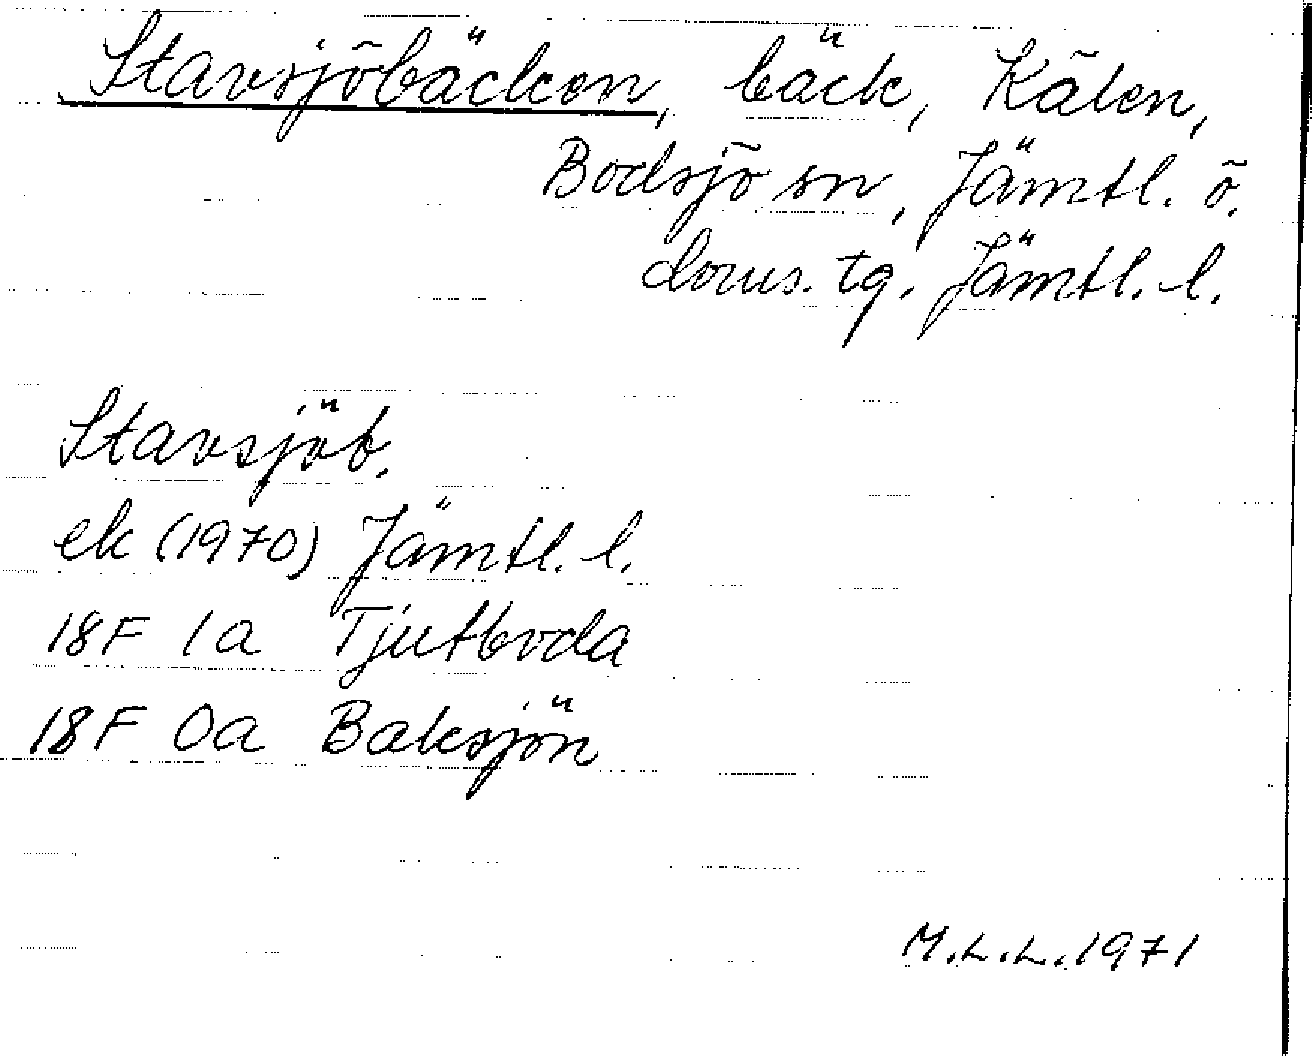 Stavsjöbäcken, bäck, Kälen,
Bodsjö sn, Jämtl. ö.
doms. tg. Jämtl. l.
Stavsjöb.
ek (1970) Jämtl. l.
18F 1a Tjutboda
18F 0a Baksjön
M.L.L. 1971